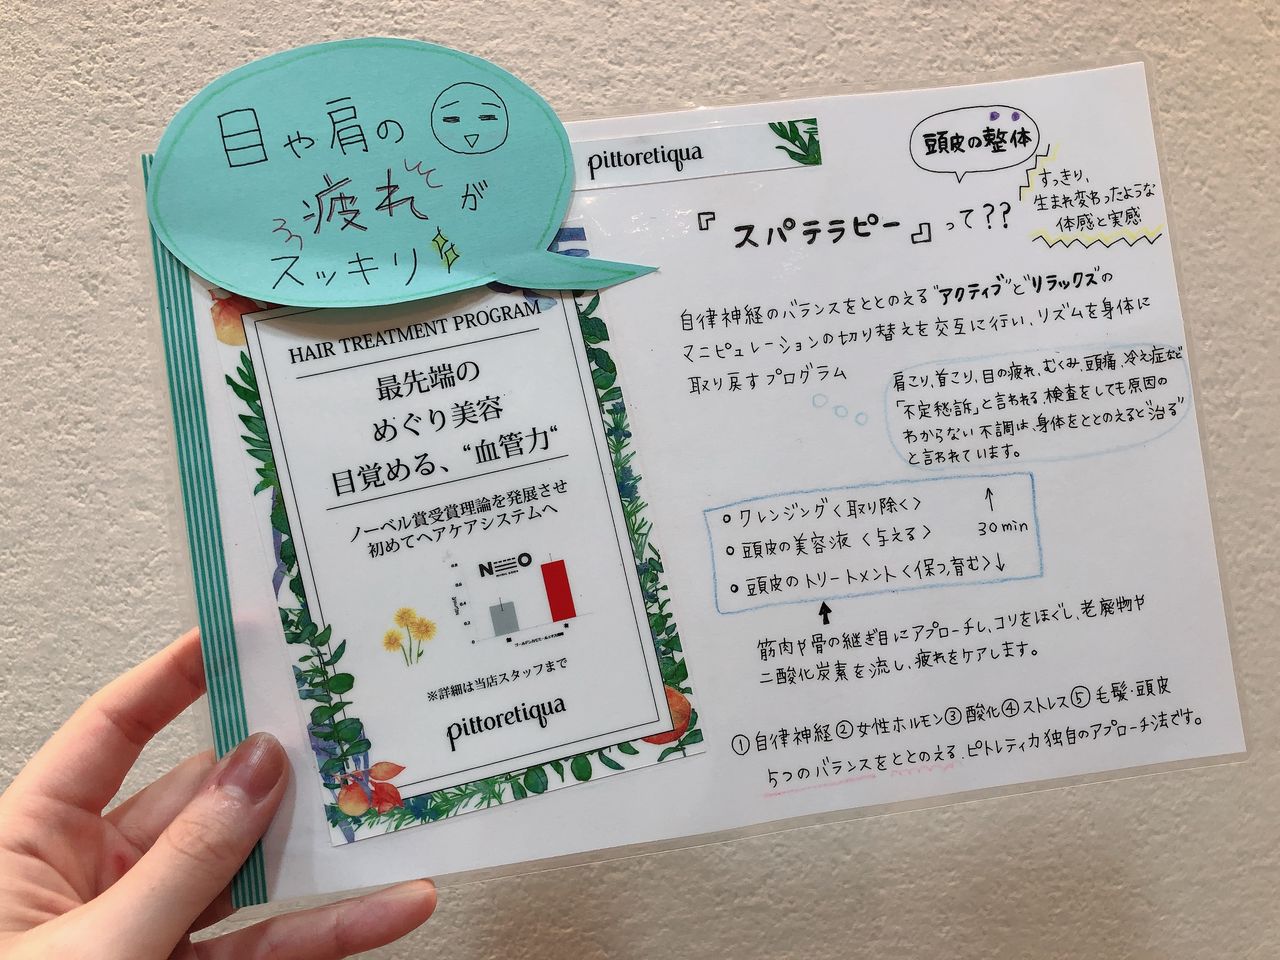 目や肩の
疲れが
スッキリ
pittoretiqua
HAIR TREATMENT PROGRAM
最先端の
めぐり美容
目覚める、“血管力“
ノーベル賞受賞理論を発展させ
初めてヘアケアシステムへ
NEO
※詳細は当店スタッフまで
pittoretiqua
頭皮の整体
すっきり、
生まれ変わったような
体感と実感
『スパテラピー』って??
自律神経のバランスをととのえる"アクティブ"と"リラックス"の
マニピュレーションの切り替えを交互に行い、リズムを身体に
取り戻すプログラム
肩こり,首こり,目の疲れ,むくみ,頭痛,冷え症など
「不定愁訴」と言われる,検査をしても原因の
わからない不調は、身体をととのえると"治る"
と言われています。
○ クレンジング〈取り除く〉
○ 頭皮の美容液〈与える〉
○ 頭皮のトリートメント〈保つ,育む〉
↑
30min
↓
筋肉や骨の継ぎ目にアプローチし、コリをほぐし、老廃物や
二酸化炭素を流し、疲れをケアします。
①自律神経②女性ホルモン③酸化④ストレス⑤毛髪・頭皮
5つのバランスをととのえる、ピトレティカ独自のアプローチ法です。